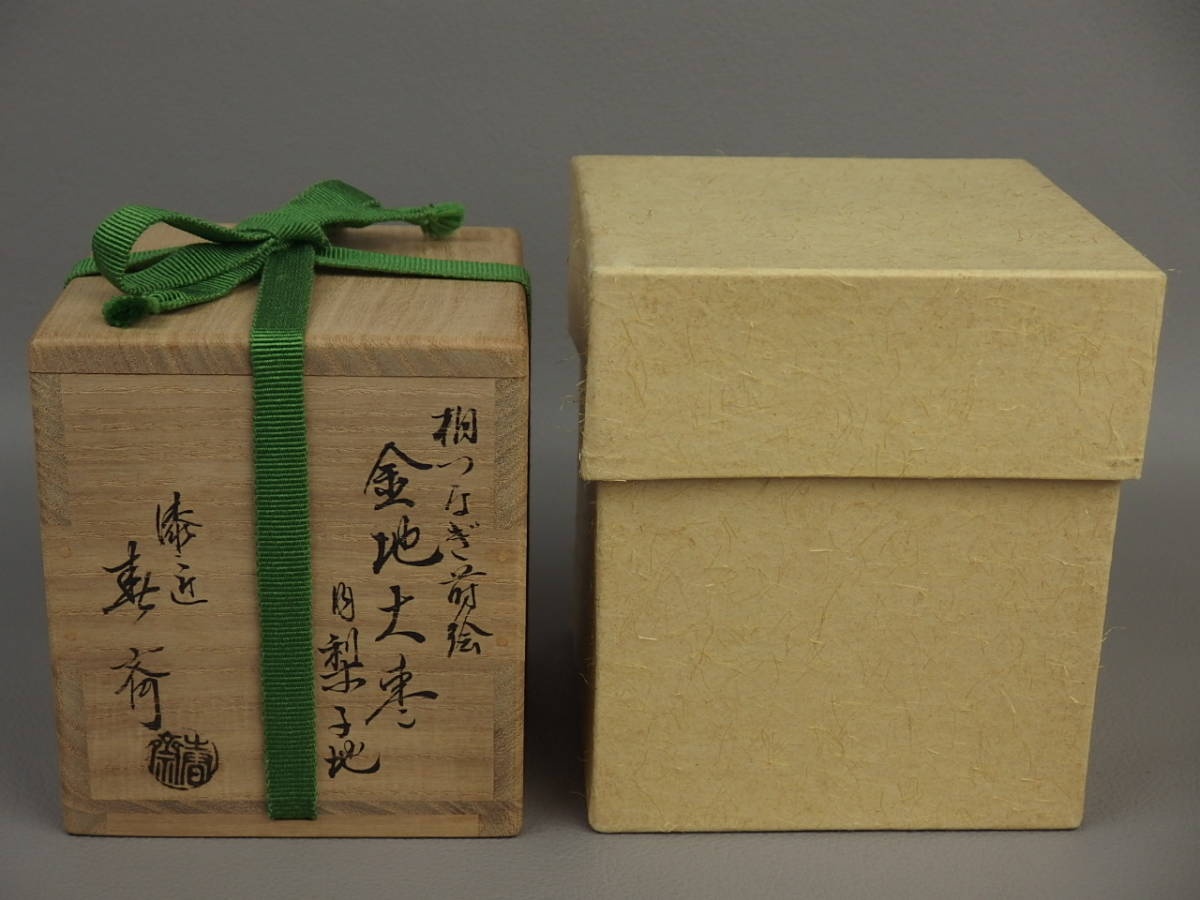 桐つなぎ蒔絵
金地大棗
内梨子地
漆匠
春斎
春斎